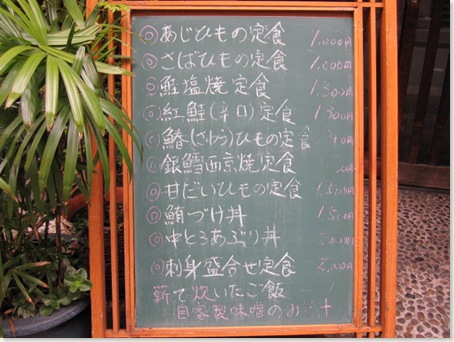 ◎あじひもの定食 1,000円
◎さばひもの定食 1,000円
◎鮭塩焼定食 1,300円
◎紅鮭(辛口)定食 1,300
◎鰆(さわら)ひもの定食
◎銀鱈西京焼定食
◎甘だいひもの定食 1,500円
◎鮪づけ丼 1,500円
◎中とろあぶり丼
◎刺身盛合せ定食 2,000円
薪で炊いたご飯
自家製味噌の